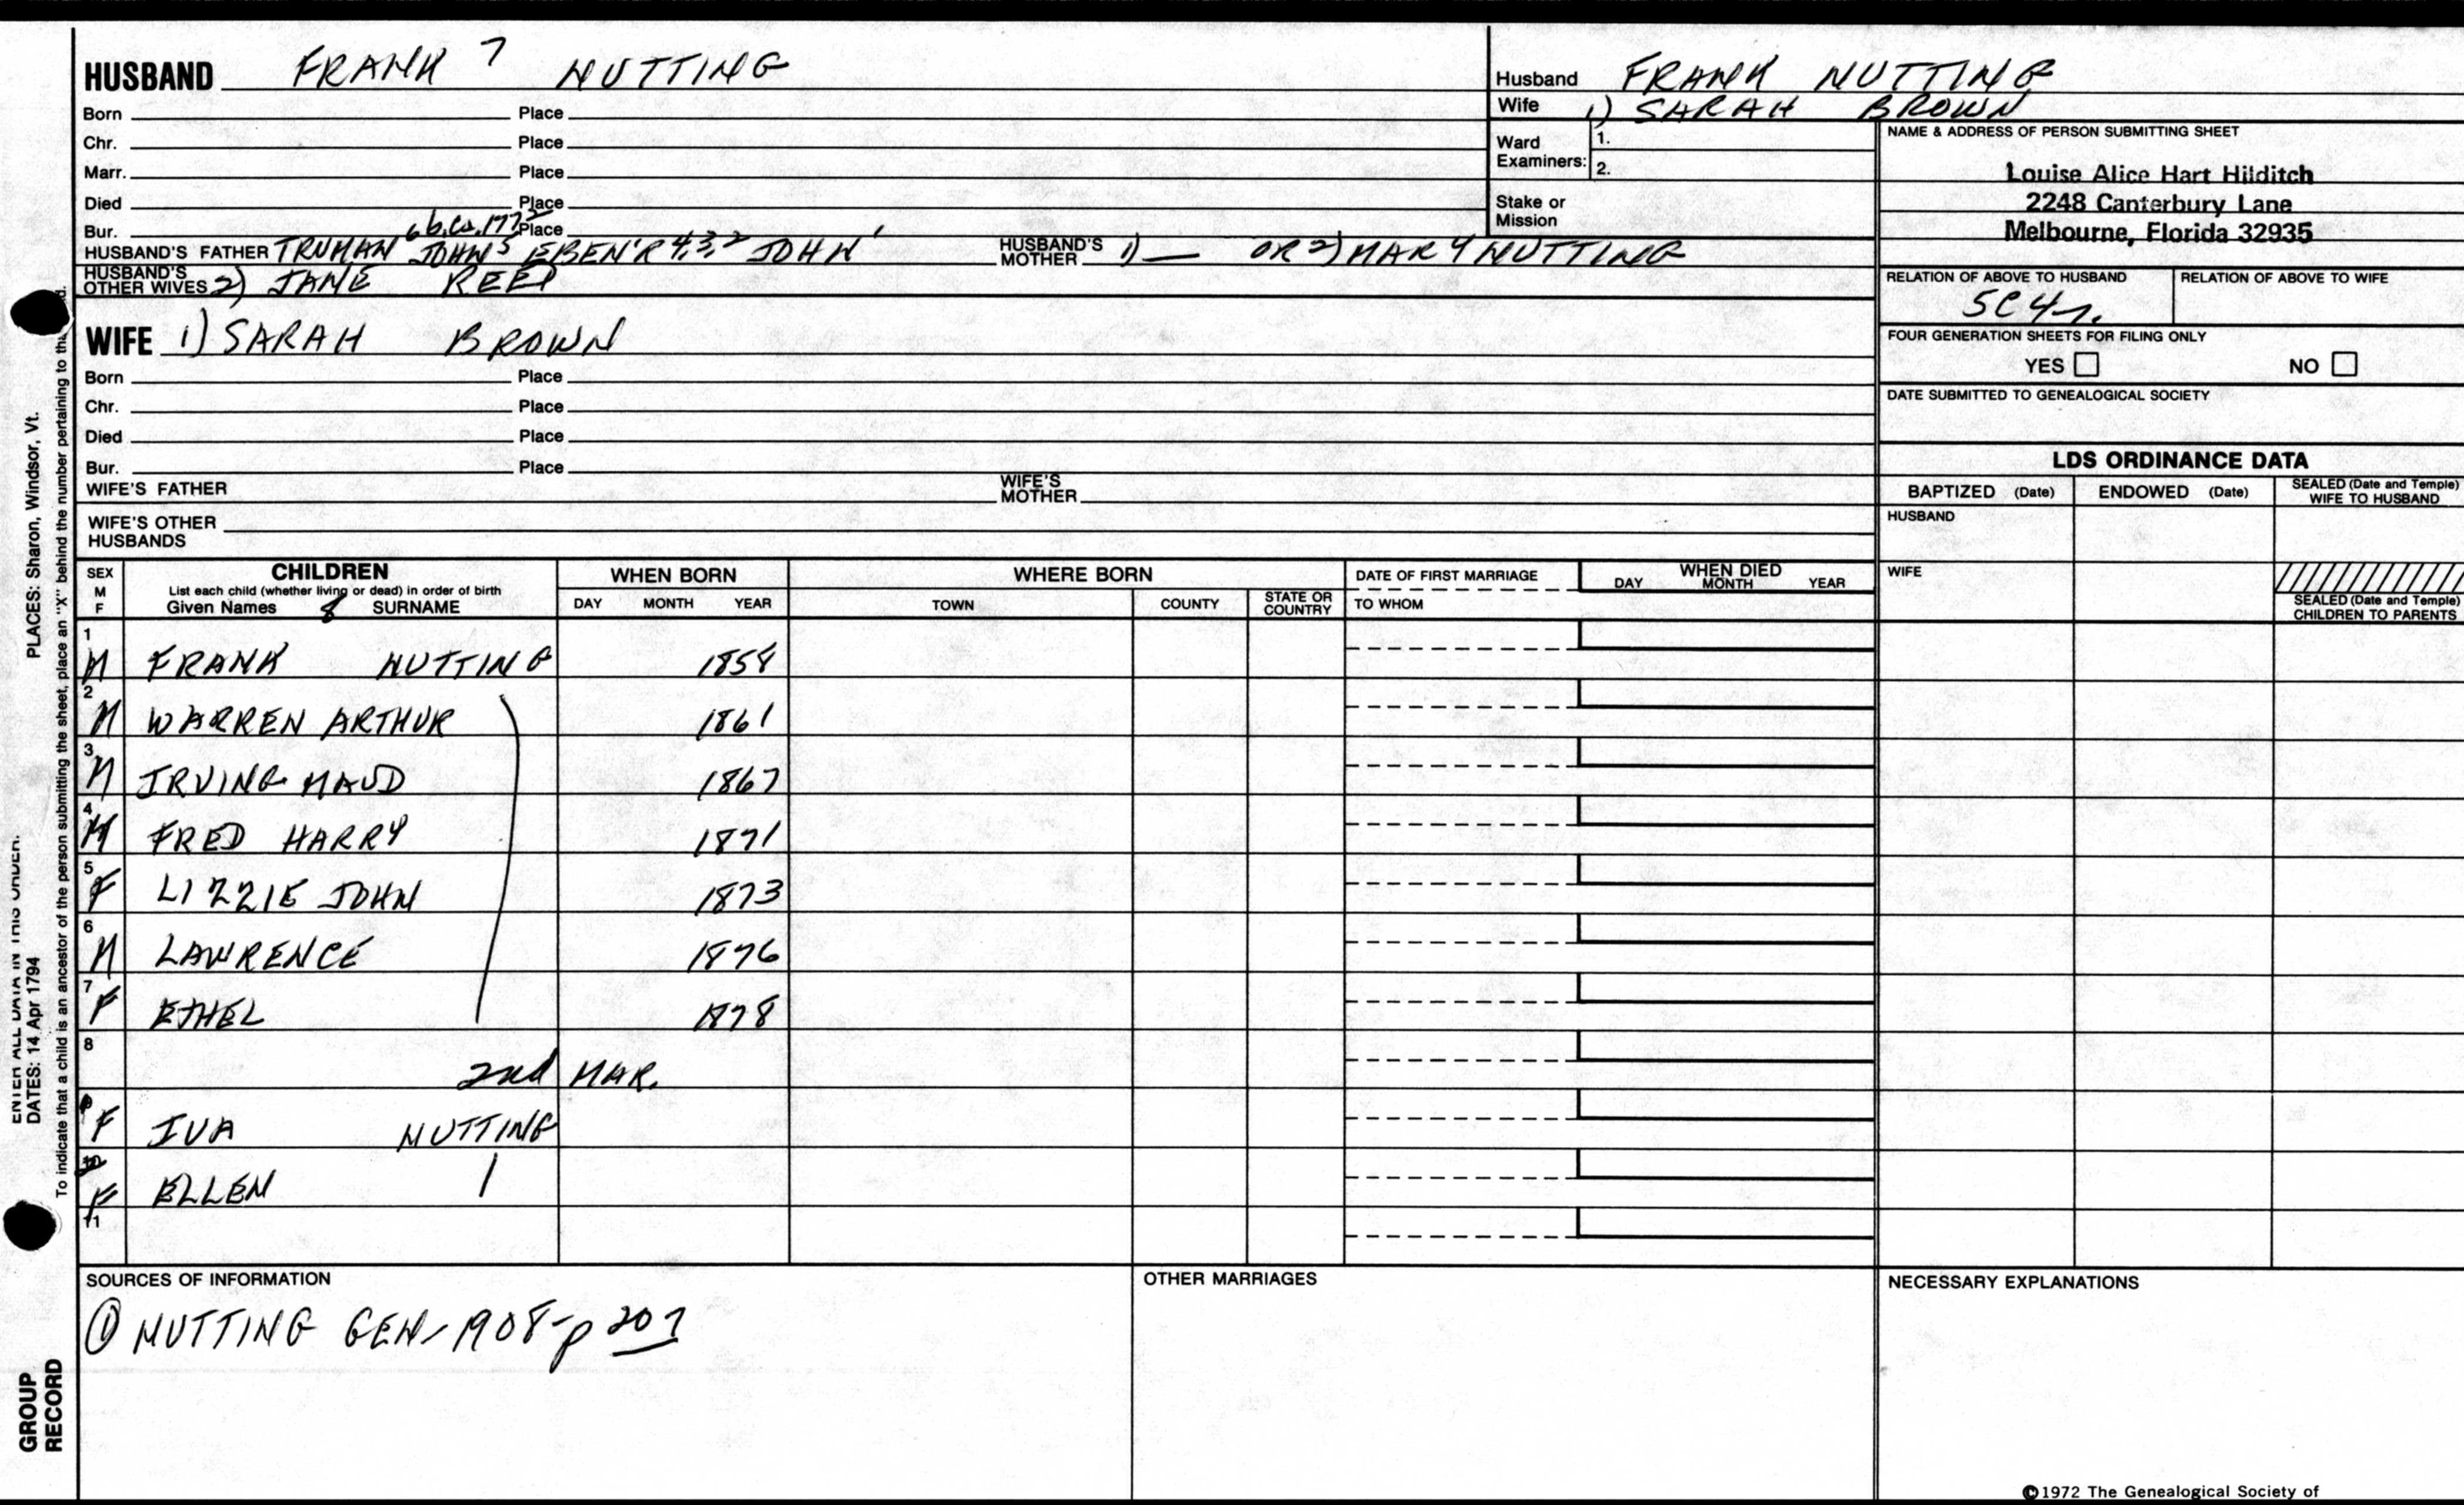 HUSBAND FRANK 7 NUTTING
Born Place
Chr. Place
Marr. Place
Died Place
Bur. 6 b. ca. 1772 Place
HUSBAND'S FATHER TRUMAN JOHN 5 EBEN'R 4,3,2 JOHN 1 HUSBAND'S MOTHER 1) — OR 2) MARY NUTTING
HUSBAND'S OTHER WIVES 2) JANE REED
Husband FRANK NUTTING
Wife 1) SARAH BROWN
Ward Examiners: 1.
2.
Stake or Mission
NAME & ADDRESS OF PERSON SUBMITTING SHEET
Louise Alice Hart Hilditch
2248 Canterbury Lane
Melbourne, Florida 32935
RELATION OF ABOVE TO HUSBAND RELATION OF ABOVE TO WIFE
5C4r.
FOUR GENERATION SHEETS FOR FILING ONLY
YES NO
DATE SUBMITTED TO GENEALOGICAL SOCIETY
WIFE 1) SARAH BROWN
Born Place
Chr. Place
Died Place
Bur. Place
WIFE'S FATHER WIFE'S MOTHER
WIFE'S OTHER HUSBANDS
LDS ORDINANCE DATA
BAPTIZED (Date) ENDOWED (Date) SEALED (Date and Temple) WIFE TO HUSBAND
HUSBAND
WIFE
SEALED (Date and Temple) CHILDREN TO PARENTS
SEX M F
CHILDREN
List each child (whether living or dead) in order of birth
Given Names 8 SURNAME
WHEN BORN
DAY MONTH YEAR
WHERE BORN
TOWN COUNTY STATE OR COUNTRY
DATE OF FIRST MARRIAGE
TO WHOM
WHEN DIED
DAY MONTH YEAR
1 M FRANK NUTTING 1858
2 M WARREN ARTHUR 1861
3 M IRVING MAUD 1867
4 M FRED HARRY 1871
5 F LIZZIE JOHN 1873
6 M LAWRENCE 1876
7 F ETHEL 1878
8 2nd MAR.
F IVA NUTTING
F ELLEN
11
SOURCES OF INFORMATION
① NUTTING GEN-1908-p 207
OTHER MARRIAGES
NECESSARY EXPLANATIONS
©1972 The Genealogical Society of
PLACES: Sharon, Windsor, Vt.
ENTER ALL DATA IN THIS ORDER.
DATES: 14 Apr 1794
To indicate that a child is an ancestor of the person submitting the sheet, place an "X" behind the number pertaining to
GROUP RECORD